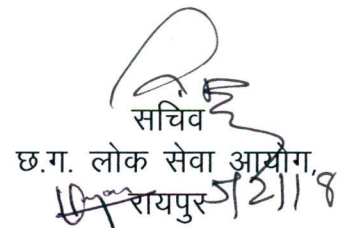 सचिव
छ.ग. लोक सेवा आयोग,
रायपुर 5/2/18